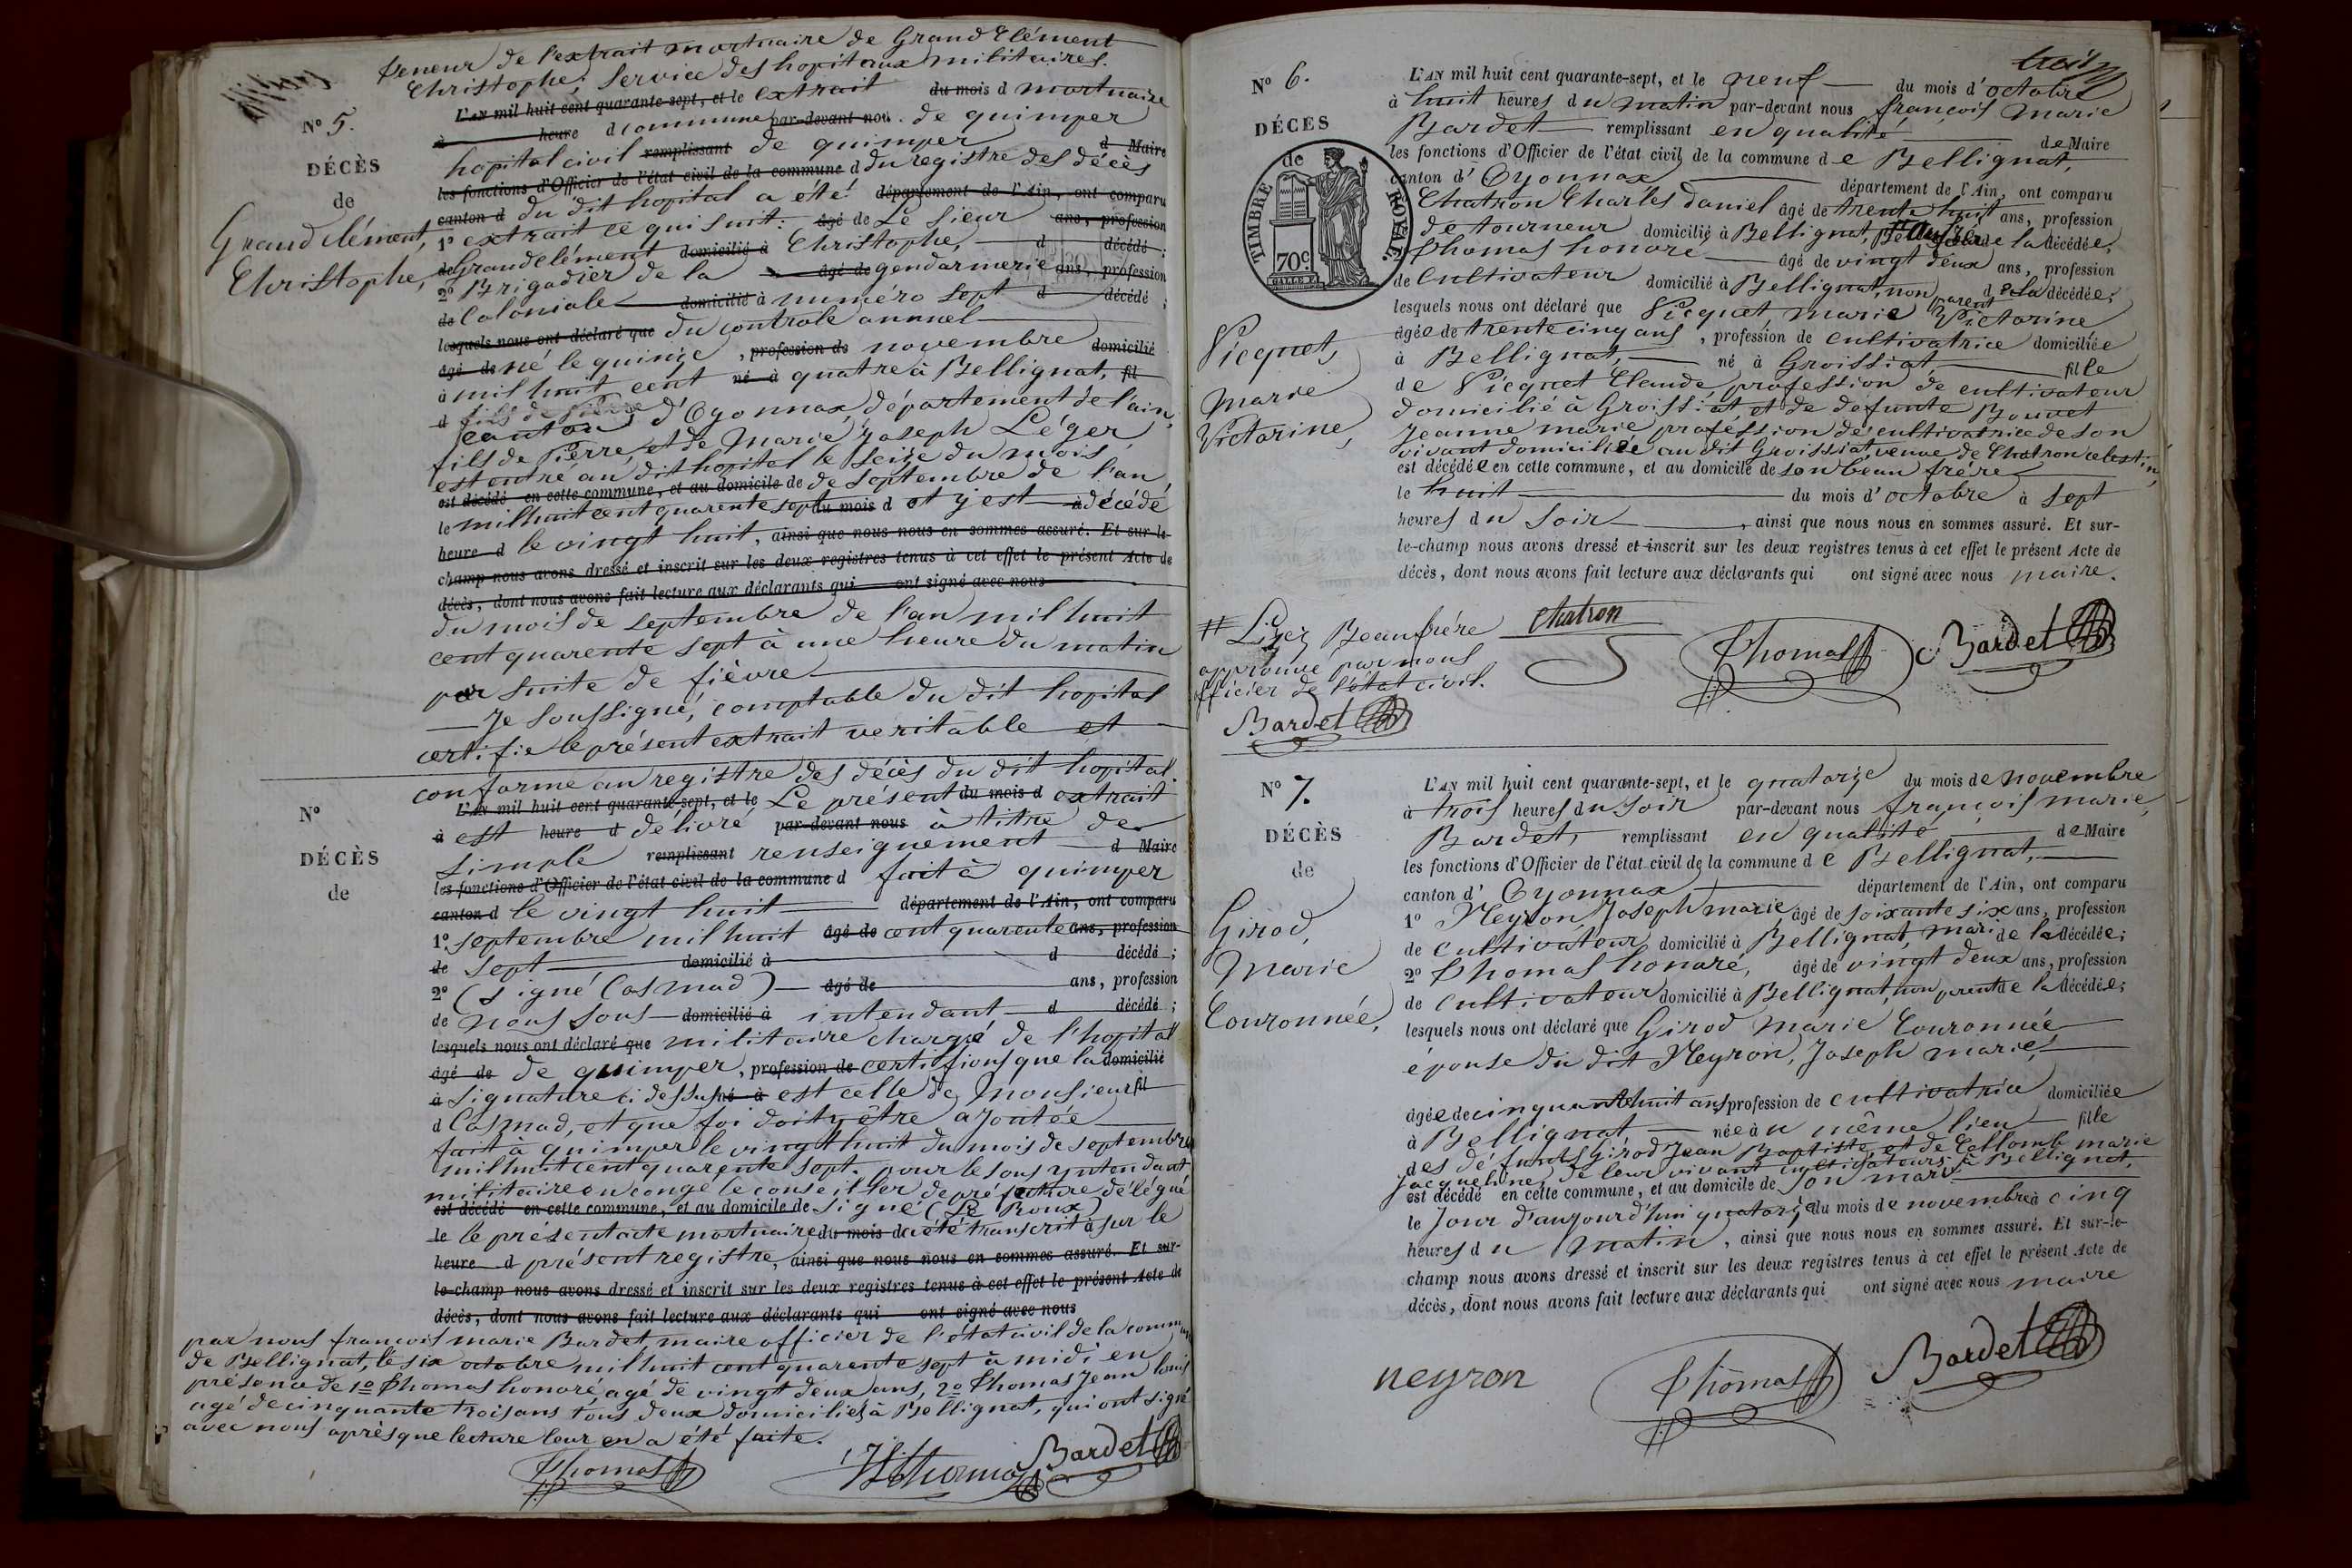 teneur de l'extrait mortuaire de Grand Clément
Christophe, service des hopitaux militaires.
N° 5.
DÉCÈS
de
Grand clément,
Christophe,
L'AN mil huit cent quarante-sept, et le extrait du mois d mortuaire
à heure d commune par-devant nou de quimper
hopital civil remplissant de quimper d Maire
les fonctions d'Officier de l'état civil de la commune d du registre des décès
canton d du dit hopital a été département de l'Ain, ont comparu
1° extrait ce qui suit: âgé de Le Sieur ans, profession
de Grandclément domicilié à Christophe, d décédé;
2° Brigadier de la âgé de gendarmerie ans, profession
de Coloniale domicilié à numéro sept d décédé;
lesquels nous ont déclaré que du controle annuel
âgé de né le quinze, profession de novembre domicilié
à mil huit cent né à quatre à Bellignat, fil
d fils de Pierre d'Oyonnax, département de l'ain,
canton
fils de Pierre, et de Marie Joseph Léger,
est entré au dit hopital le seize du mois
est décédé en cette commune, et au domicile de de septembre de l'an
le mil huit cent quarente sept du mois d et y est à décédé
heure d le vingt huit, ainsi que nous nous en sommes assuré. Et sur-le-
champ nous avons dressé et inscrit sur les deux registres tenus à cet effet le présent Acte de
décès, dont nous avons fait lecture aux déclarants qui ont signé avec nous
du mois de septembre de l'an mil huit
cent quarente sept à une heure du matin
par suite de fièvre
Je soussigné, comptable du dit hopital
certifie le présent extrait veritable et
conforme au registre des décès du dit hopital.
N°
DÉCÈS
de
L'AN mil huit cent quarante-sept, et le Le présent du mois d extrait
à est heure d délivré par-devant nous à titre de
simple remplissant renseignement d Maire
les fonctions d'Officier de l'état civil de la commune d fait à quimper
canton d le vingt huit département de l'Ain, ont comparu
1° septembre mil huit âgé de cent quarente ans, profession
de sept domicilié à d décédé;
2° (signé Casmad) âgé de ans, profession
de nous sous domicilié à intendant d décédé;
lesquels nous ont déclaré que militaire chargé de l'hopital
âgé de de quimper, profession de certifions que la domicilié
à signature ci dessus né à est celle de Monsieur fil
d Casmad, et que foi doit y être ajoutée
fait à quimper le vingt huit du mois de septembre
mil huit cent quarente sept. pour le sous yntendant
militaire en congé le conseiller de préfecture délégué
est décédé en cette commune, et au domicile de signé (Le Roux)
le le présent acte mortuaire du mois d a été transcrit à sur le
heure d présent registre, ainsi que nous nous en sommes assuré. Et sur-
le-champ nous avons dressé et inscrit sur les deux registres tenus à cet effet le présent Acte de
décès, dont nous avons fait lecture aux déclarants qui ont signé avec nous
par nous françois marie Bardet maire officier de l'état civil de la commune
de Bellignat, le six octobre mil huit cent quarente sept à midi en
présence de 1° Thomas honoré, agé de vingt deux ans, 2° Thomas Jean louis
agé de cinquante trois ans tous deux domiciliés à Bellignat, qui ont signé
avec nous après que lecture leur en a été faite.
Thomas Thomas Bardet
N° 6.
DÉCÈS
de
TIMBRE ROYAL
70c
Vicquet,
Marie
Victorine,
L'AN mil huit cent quarante-sept, et le neuf du mois d'octobre
à huit heures du matin par-devant nous françois marie
Bardet remplissant en qualité de Maire
les fonctions d'Officier de l'état civil de la commune de Bellignat,
canton d'Oyonnax département de l'Ain, ont comparu
Chatron Charles Daniel âgé de trente huit ans, profession
de tourneur domicilié à Bellignat, de la décédée;
Thomas honoré âgé de vingt deux ans, profession
de Cultivateur domicilié à Bellignat, non parent de la décédée;
lesquels nous ont déclaré que Vicquet Marie Victorine
âgée de trente cinq ans, profession de cultivatrice domiciliée
à Bellignat, né à Groissiat fille
de Vicquet Claude, profession de cultivateur
domicilié à Groissiat, et de defunte Bouvet
Jeanne marie profession de cultivatrice de son
vivant domiciliée au dit Groissiat, veuve de Chatron celestin,
est décédée en cette commune, et au domicile de son beau frére
le huit du mois d'octobre à sept
heures du soir, ainsi que nous nous en sommes assuré. Et sur-
le-champ nous avons dressé et inscrit sur les deux registres tenus à cet effet le présent Acte de
décès, dont nous avons fait lecture aux déclarants qui ont signé avec nous maire.
# Lisez Beaufrére
approuvé par nous
officier de l'état civil.
Bardet
Chatron Thomas Bardet
N° 7.
DÉCÈS
de
Girod,
Marie
Couronnée,
L'AN mil huit cent quarante-sept, et le quatorze du mois de novembre
à trois heures du soir par-devant nous françois marie,
Bardet, remplissant en qualité de Maire
les fonctions d'Officier de l'état civil de la commune de Bellignat,
canton d'Oyonnax département de l'Ain, ont comparu
1° Neyron, Joseph marie, âgé de soixante six ans, profession
de cultivateur domicilié à Bellignat, mari de la décédée;
2° Thomas honoré, âgé de vingt deux ans, profession
de cultivateur domicilié à Bellignat, non parent de la décédée;
lesquels nous ont déclaré que Girod Marie Couronnée
épouse du dit Neyron, Joseph marie,
âgée de cinquante huit ans profession de cultivatrice domiciliée
à Bellignat née à u même lieu fille
des défunts Girod Jean Baptiste et de Collomb marie
Jacqueline, de leur vivant cultivateurs à Bellignat,
est décédé en cette commune, et au domicile de son mari
le Jour d'aujourd'hui quatorze du mois de novembre à cinq
heures du matin, ainsi que nous nous en sommes assuré. Et sur-le-
champ nous avons dressé et inscrit sur les deux registres tenus à cet effet le présent Acte de
décès, dont nous avons fait lecture aux déclarants qui ont signé avec nous maire
neyron Thomas Bardet